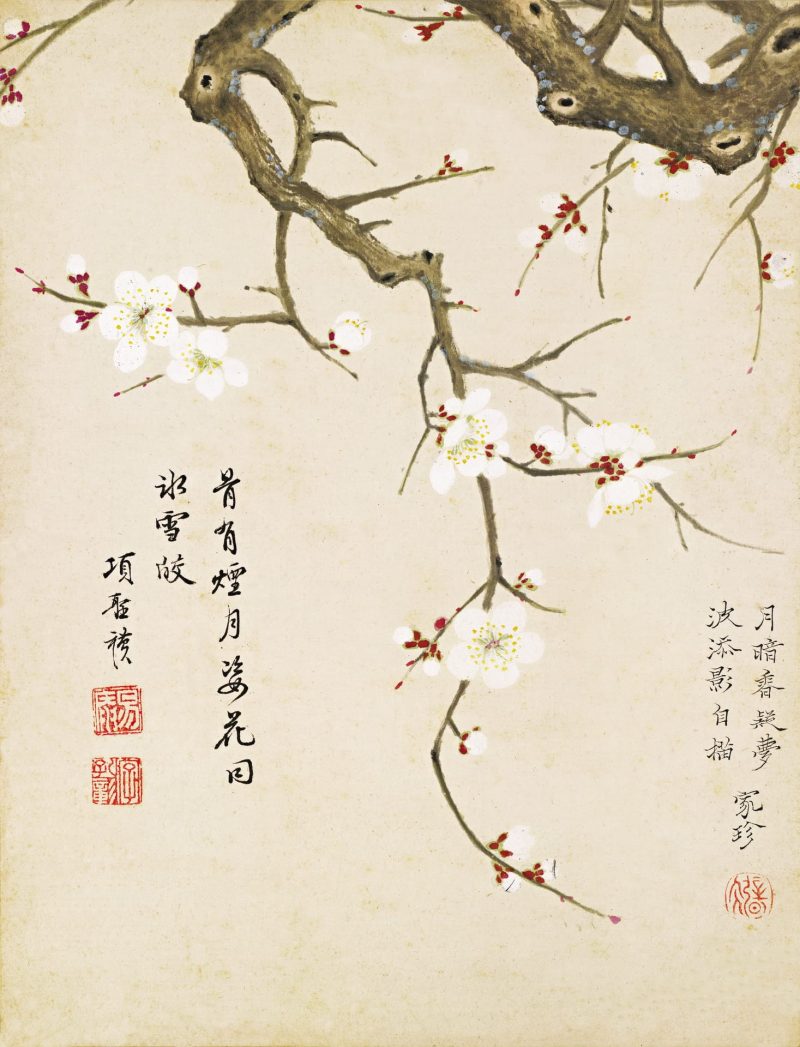 月暗香疑夢
波添影自描
家珍
骨有煙月姿花同
氷雪皎
項聖謨